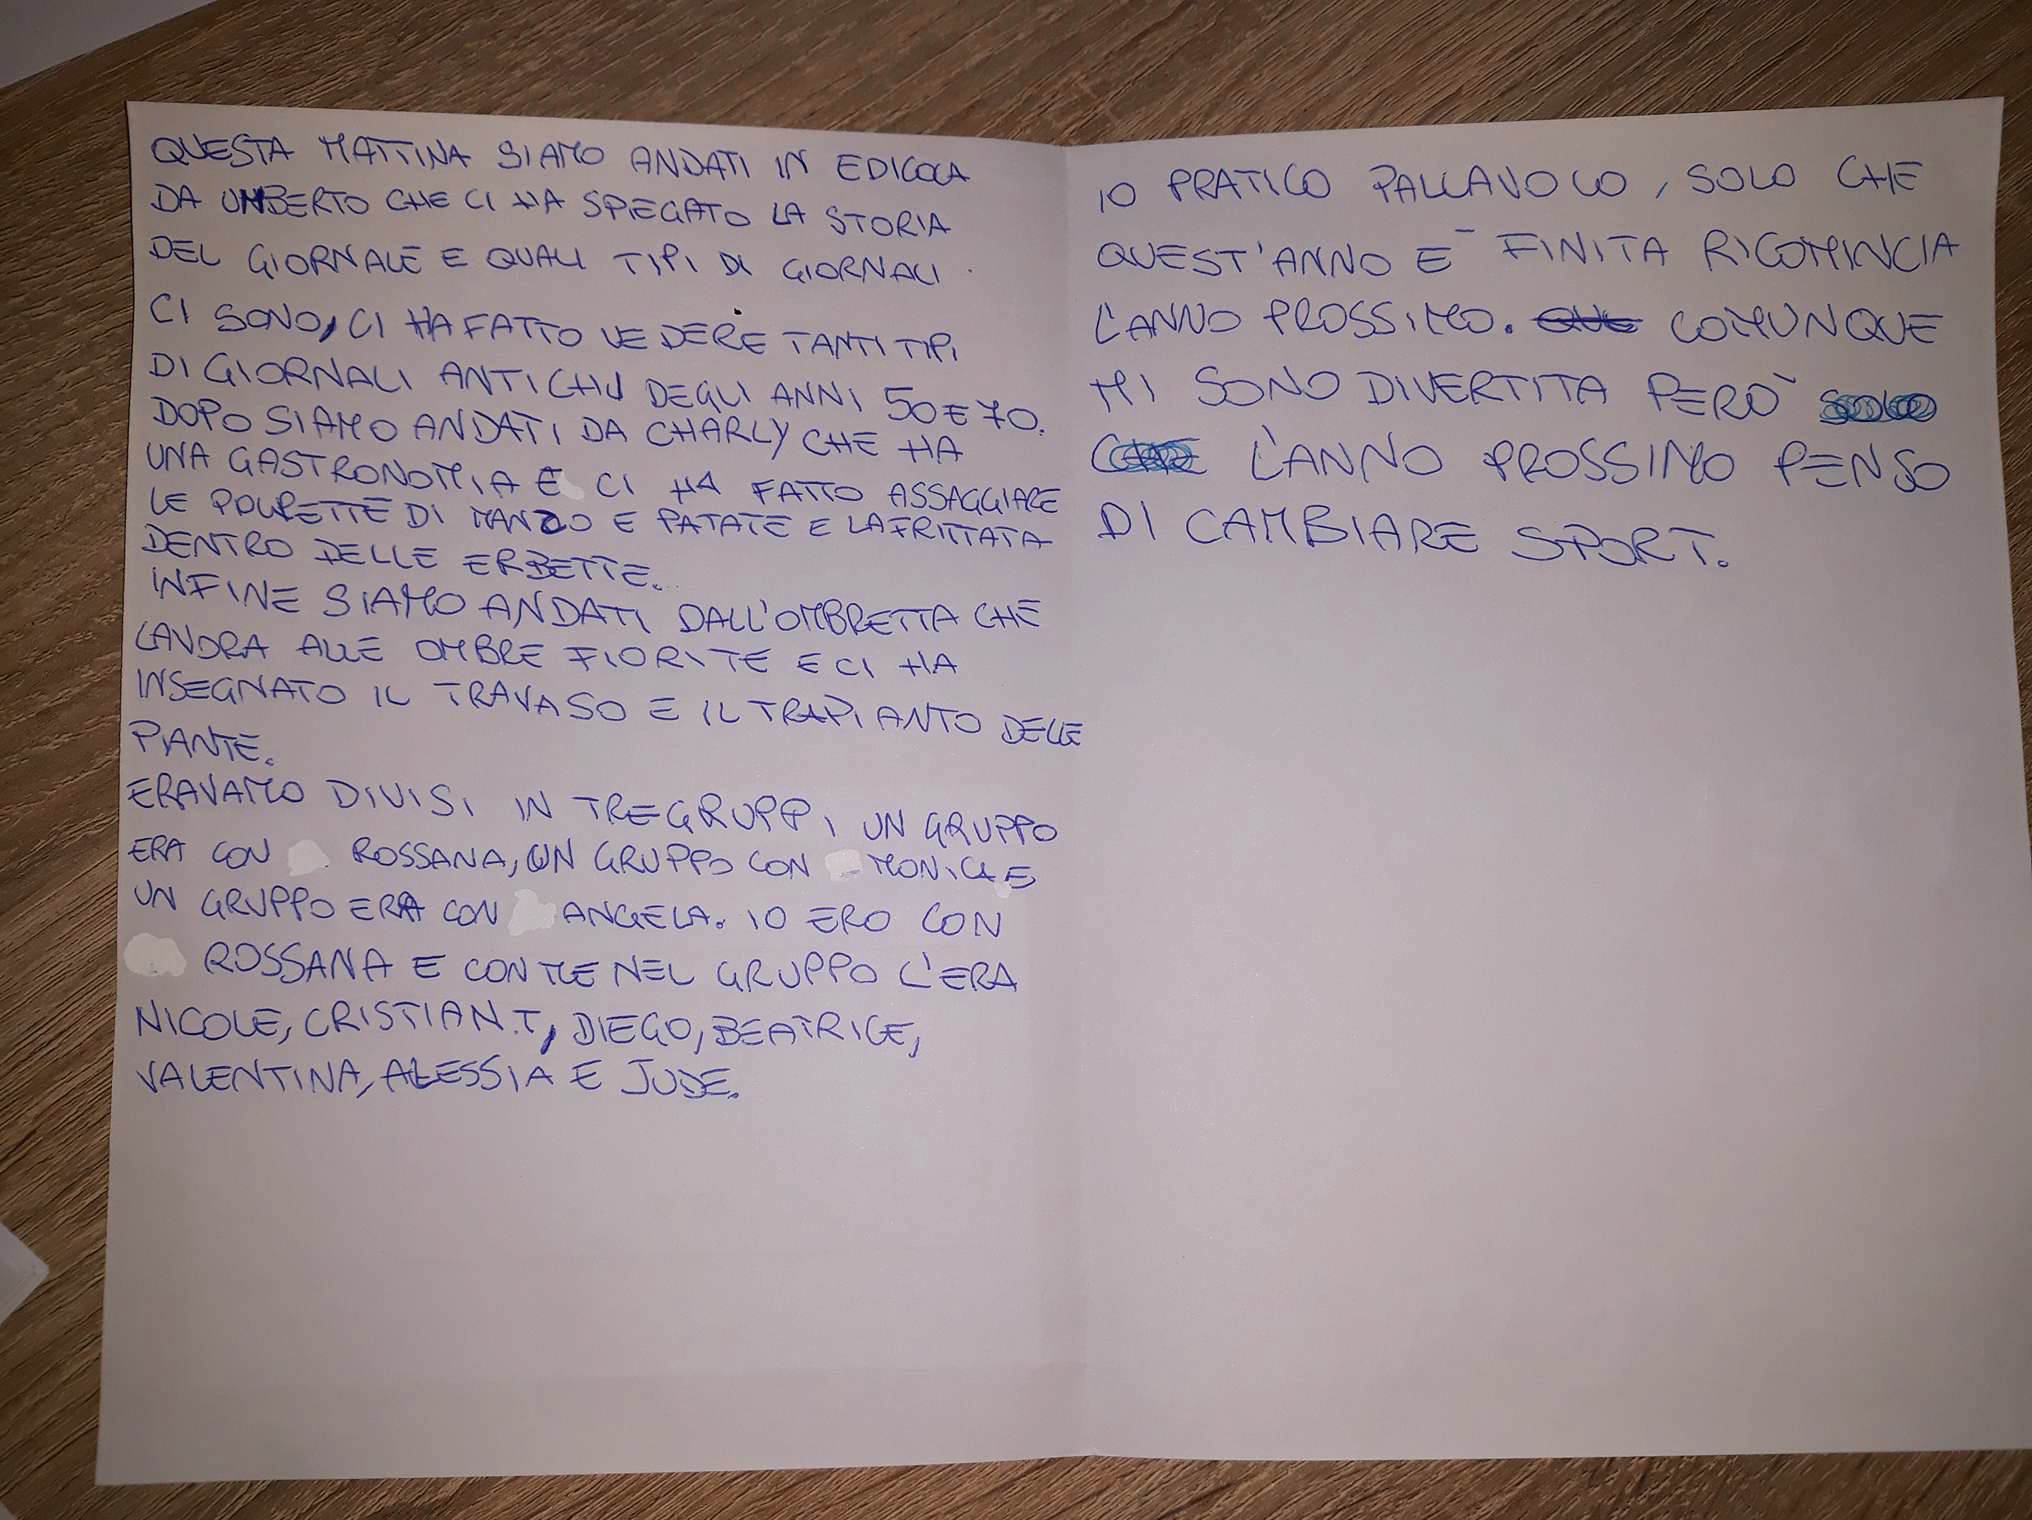 QUESTA MATTINA SIAMO ANDATI IN EDICOLA
DA UMBERTO CHE CI HA SPIEGATO LA STORIA
DEL GIORNALE E QUALI TIPI DI GIORNALI
CI SONO, CI HA FATTO VEDERE TANTI TIPI
DI GIORNALI ANTICHI DEGLI ANNI 50 E 70.
DOPO SIAMO ANDATI DA CHARLY CHE HA
UNA GASTRONOMIA E CI HA FATTO ASSAGGIARE
LE POLPETTE DI MANZO E PATATE E LA FRITTATA
DENTRO DELLE ERBETTE.
INFINE SIAMO ANDATI DALL'OMBRETTA CHE
LAVORA ALLE OMBRE FIORITE E CI HA
INSEGNATO IL TRAVASO E IL TRAPIANTO DELLE
PIANTE.
ERAVAMO DIVISI IN TRE GRUPPI, UN GRUPPO
ERA CON ROSSANA, UN GRUPPO CON MONICA E
UN GRUPPO ERA CON ANGELA. IO ERO CON
ROSSANA E CON ME NEL GRUPPO C'ERA
NICOLE, CRISTIAN.T, DIEGO, BEATRICE,
VALENTINA, ALESSIA E JUDE.
IO PRATICO PALLAVOLO, SOLO CHE
QUEST'ANNO E' FINITA RICOMINCIA
L'ANNO PROSSIMO. COMUNQUE
MI SONO DIVERTITA PERO'
L'ANNO PROSSIMO PENSO
DI CAMBIARE SPORT.